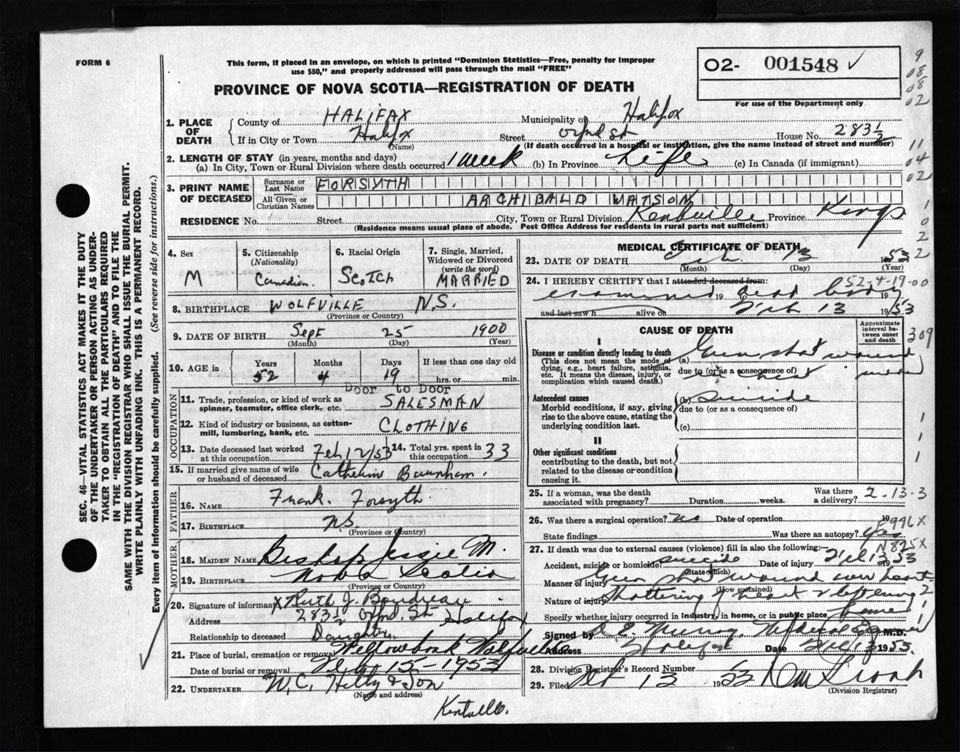 FORM 6
This form, if placed in an envelope, on which is printed "Dominion Statistics—Free, penalty for improper
use $50," and properly addressed will pass through the mail "FREE"
PROVINCE OF NOVA SCOTIA—REGISTRATION OF DEATH
O2- 001548
For use of the Department only
1. PLACE OF DEATH
County of HALIFAX Municipality of Halifax
If in City or Town Halifax Street Oxford St House No. 283½
(Name) (If death occurred in a hospital or institution, give the name instead of street and number)
2. LENGTH OF STAY (in years, months and days)
(a) In City, Town or Rural Division where death occurred 1 week (b) In Province Life (c) In Canada (if immigrant)
3. PRINT NAME OF DECEASED
Surname or Last Name FORSYTH
All Given or Christian Names ARCHIBALD WATSON
RESIDENCE No. Street City, Town or Rural Division Kentville Province Kings
(Residence means usual place of abode. Post Office Address for residents in rural parts not sufficient)
4. Sex M
5. Citizenship (Nationality) Canadian
6. Racial Origin SCOTCH
7. Single, Married, Widowed or Divorced (write the word) MARRIED
8. BIRTHPLACE WOLFVILLE N.S.
(Province or Country)
9. DATE OF BIRTH Sept 25 1900
(Month) (Day) (Year)
10. AGE in Years Months Days If less than one day old
52 4 19 hrs. or min.
OCCUPATION
Door to Door
11. Trade, profession, or kind of work as spinner, teamster, office clerk, etc. SALESMAN
12. Kind of industry or business, as cotton-mill, lumbering, bank, etc. CLOTHING
13. Date deceased last worked at this occupation Feb 12/53
14. Total yrs. spent in this occupation 33
15. If married give name of wife or husband of deceased Catherine Burnham.
FATHER
16. Name Frank Forsyth
17. BIRTHPLACE N.S.
(Province or Country)
MOTHER
18. MAIDEN NAME Bishop Jessie M.
19. BIRTHPLACE Nova Scotia
(Province or Country)
20. Signature of informant X Ruth J. Boudreau
Address 283½ Oxford St Halifax
Relationship to deceased Daughter
21. Place of burial, cremation or removal Willowbank Wolfville
Date of burial or removal Feb 15-1953
22. UNDERTAKER W.C. Hiltz & Son
(Name and address)
Kentville.
MEDICAL CERTIFICATE OF DEATH
23. DATE OF DEATH Feb. 13 1953
(Month) (Day) (Year)
24. I HEREBY CERTIFY that I attended deceased from
52-4-19-00
examined 19 dead body 19
and last saw h alive on Feb 13 1953
CAUSE OF DEATH
Approximate interval between onset and death
I
Disease or condition directly leading to death
(This does not mean the mode of dying, e.g., heart failure, asthenia, etc. It means the disease, injury, or complication which caused death.)
(a) Gun shot wound
due to (or as a consequence of)
chest
Antecedent causes
Morbid conditions, if any, giving rise to the above cause, stating the underlying condition last.
suicide
due to (or as a consequence of)
(c)
II
Other significant conditions
contributing to the death, but not related to the disease or condition causing it.
25. If a woman, was the death associated with pregnancy? Duration weeks. Was there a delivery?
2-13-3
26. Was there a surgical operation? no Date of operation 19
State findings Was there an autopsy? yes
27. If death was due to external causes (violence) fill in also the following:—
Accident, suicide or homicide? suicide Date of injury Feb 13 53
(State which)
Manner of injury Gun shot wound over heart
(How sustained)
Nature of injury Shattering of heart
Specify whether injury occurred in industry, in home, or in public place home
Signed by M.D.
Address Halifax Date Feb 13 1953.
28. Division Registrar's Record Number
29. Filed Feb 13 1953
(Division Registrar)
SEC. 46—VITAL STATISTICS ACT MAKES IT THE DUTY
OF THE UNDERTAKER OR PERSON ACTING AS UNDER-
TAKER TO OBTAIN ALL THE PARTICULARS REQUIRED
IN THE "REGISTRATION OF DEATH" AND TO FILE THE
SAME WITH THE DIVISION REGISTRAR WHO SHALL ISSUE THE BURIAL PERMIT.
WRITE PLAINLY WITH UNFADING INK. THIS IS A PERMANENT RECORD.
Every item of Information should be carefully supplied. (See reverse side for instructions.)